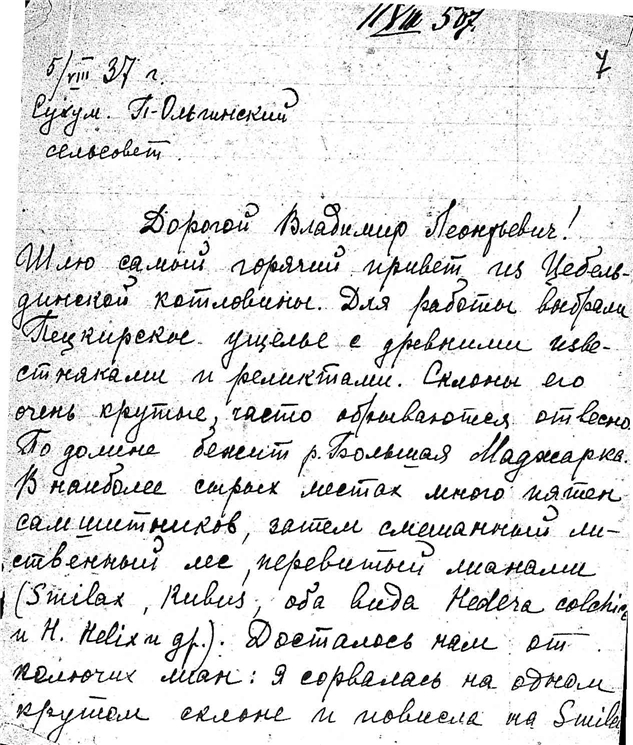 11 VIII 507.
7
5/VIII 37 г.
Сухум. П-Ольгинский
сельсовет.
Дорогой Владимир Леонтьевич!
Шлю самый горячий привет из Цебель-
динской котловины. Для работы выбрали
Пецкирское ущелье с древними изве-
стняками и реликтами. Склоны его
очень крутые, часто обрываются отвесно.
По долине бежит р. Большая Маджарка.
В наиболее сырых местах много пятен
самшитников, затем смешанный ли-
ственный лес, перевитый лианами
(Smilax, Rubus, оба вида Hedera colchica
и H. Helix и др.). Досталось нам от
колючих лиан: я сорвалась на одном
крутом склоне и повисла на Smilax